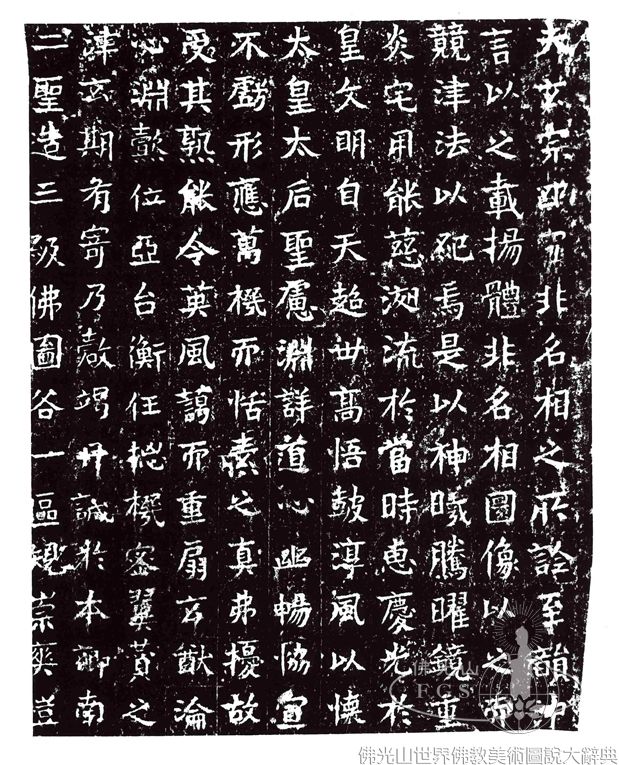 夫玄宗幽寂非名相之所詮至韻沖
言以之載揚體非名相圖像以之而
競津法以祀焉是以神曦騰曜鏡重
炎宅用能慈澍流於當時惠慶光於
皇文明自天超世高悟鼓淳風以懷
太皇太后聖慮淵詳道心幽暢協宣
不虧形應萬機而恬素之真弗擾故
受其熟能令英風藹而重扇玄猷淪
心淵懿位亞台衡任揔機密翼贊之
津玄期有寄乃罄竭丹誠於本鄉南
二聖造三級佛圖各一區規崇爽塏
佛光山
FGS
佛光山世界佛教美術圖說大辭典